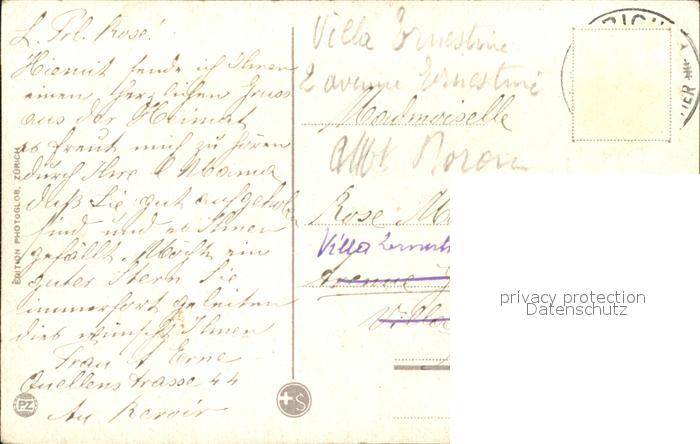 L. Frl. Rose!
Hiemit sende ich Ihnen
einen herzlichen Gruss
aus der Heimat
es freut mich zu hören
durch Ihre l. Mama
daß Sie gut aufgehoben
sind und es Ihnen
gefällt. Möchte ein
guter Stern Sie
immerfort geleiten
dies wünscht Ihnen
Frau A Erne
Quellenstrasse 44
Au Revoir
EDITION PHOTOGLOB, ZÜRICH
PZ
S
Villa Ernestine
2 avenue Ernestine
Madmoiselle
Rose
Villa
Avenue
Villa
privacy protection
Datenschutz